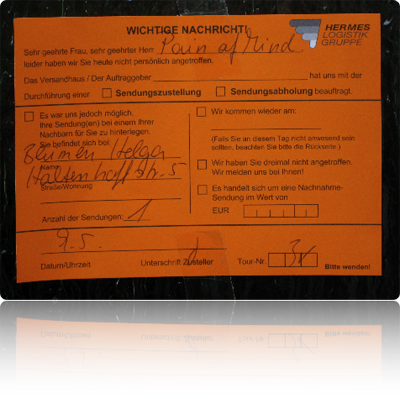 WICHTIGE NACHRICHT!
HERMES
LOGISTIK
GRUPPE
Sehr geehrte Frau, sehr geehrter Herr Pain of Mind
leider haben wir Sie heute nicht persönlich angetroffen.
Das Versandhaus / Der Auftraggeber hat uns mit der
Durchführung einer Sendungszustellung Sendungsabholung beauftragt.
Es war uns jedoch möglich,
Ihre Sendung(en) bei einem Ihrer
Nachbarn für Sie zu hinterlegen.
Sie befindet sich bei
Blumen Helga
Name
Haltenhoffstr. 5
Straße/Wohnung
Anzahl der Sendungen: 1
Wir kommen wieder am:
(Falls Sie an diesem Tag nicht anwesend sein
sollten, beachten Sie bitte die Rückseite.)
Wir haben Sie dreimal nicht angetroffen.
Wir melden uns bei Ihnen!
Es handelt sich um eine Nachnahme-
Sendung im Wert von
EUR
9.5.
Datum/Uhrzeit
Unterschrift Zusteller
Tour-Nr.
Bitte wenden!